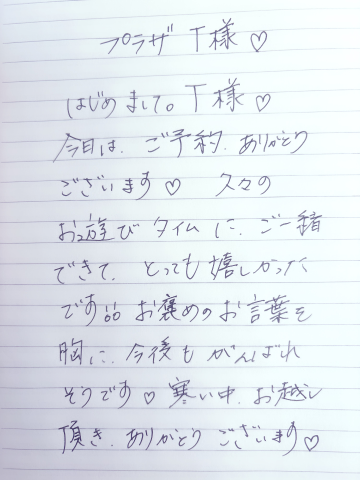 プラザ T様♡
はじめまして。T様♡
今日は、ご予約、ありがとう
ございます♡ 久々の
お遊びタイムに、ご一緒
できて、とっても嬉しかった
です お褒めのお言葉を
胸に、今後もがんばれ
そうです♡ 寒い中、お越し
頂き、ありがとうございます♡